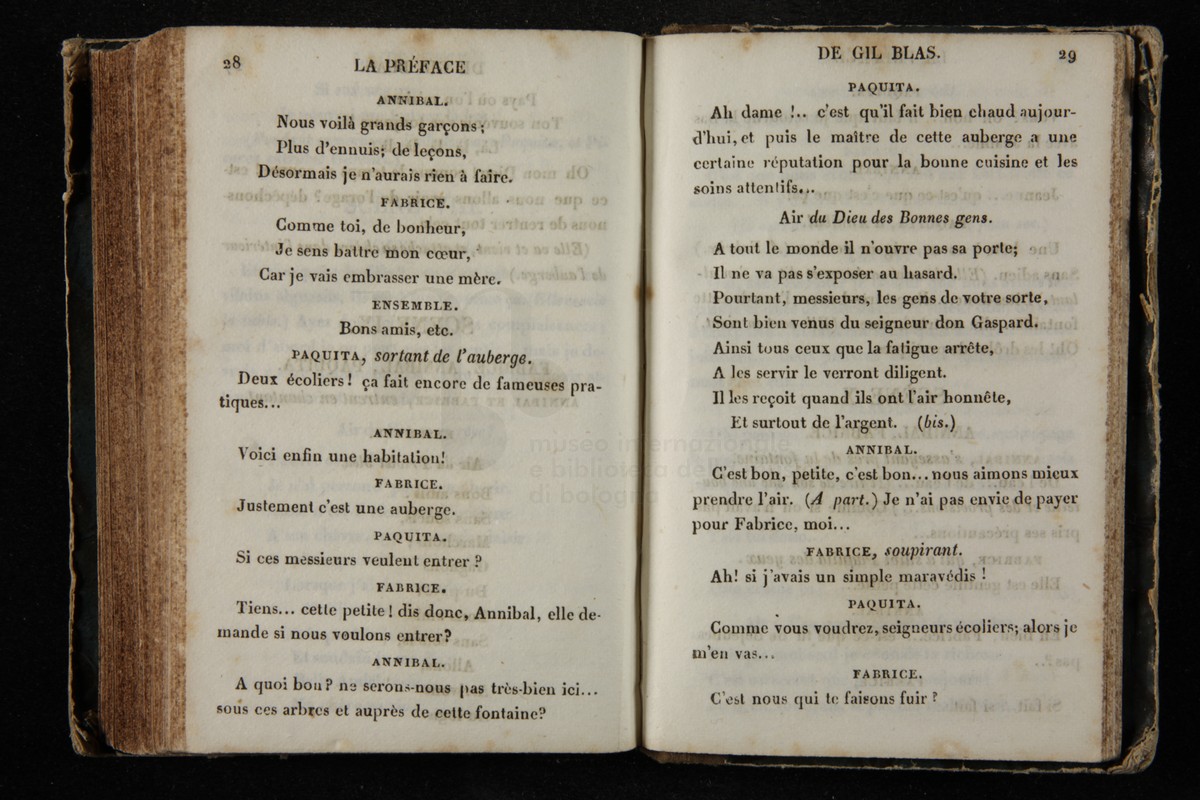 28
LA PRÉFACE
ANNIBAL.
Nous voilà grands garçons;
Plus d'ennuis; de leçons,
Désormais je n'aurais rien à faire.
FABRICE.
Comme toi, de bonheur,
Je sens battre mon cœur,
Car je vais embrasser une mère.
ENSEMBLE.
Bons amis, etc.
PAQUITA, sortant de l'auberge.
Deux écoliers! ça fait encore de fameuses pra-
tiques...
ANNIBAL.
Voici enfin une habitation!
FABRICE.
Justement c'est une auberge.
PAQUITA.
Si ces messieurs veulent entrer ?
FABRICE.
Tiens... cette petite! dis donc, Annibal, elle de-
mande si nous voulons entrer?
ANNIBAL.
A quoi bon? ne serons-nous pas très-bien ici...
sous ces arbres et auprès de cette fontaine?
DE GIL BLAS.
29
PAQUITA.
Ah dame !.. c'est qu'il fait bien chaud aujour-
d'hui, et puis le maître de cette auberge a une
certaine réputation pour la bonne cuisine et les
soins attentifs...
Air du Dieu des Bonnes gens.
A tout le monde il n'ouvre pas sa porte;
Il ne va pas s'exposer au hasard.
Pourtant, messieurs, les gens de votre sorte,
Sont bien venus du seigneur don Gaspard.
Ainsi tous ceux que la fatigue arrête,
A les servir le verront diligent.
Il les reçoit quand ils ont l'air honnête,
Et surtout de l'argent. (bis.)
ANNIBAL.
C'est bon, petite, c'est bon... nous aimons mieux
prendre l'air. (A part.) Je n'ai pas envie de payer
pour Fabrice, moi...
FABRICE, soupirant.
Ah! si j'avais un simple maravédis !
PAQUITA.
Comme vous voudrez, seigneurs écoliers; alors je
m'en vas...
FABRICE.
C'est nous qui te faisons fuir ?
museo internazionale
e biblioteca de
di bologna